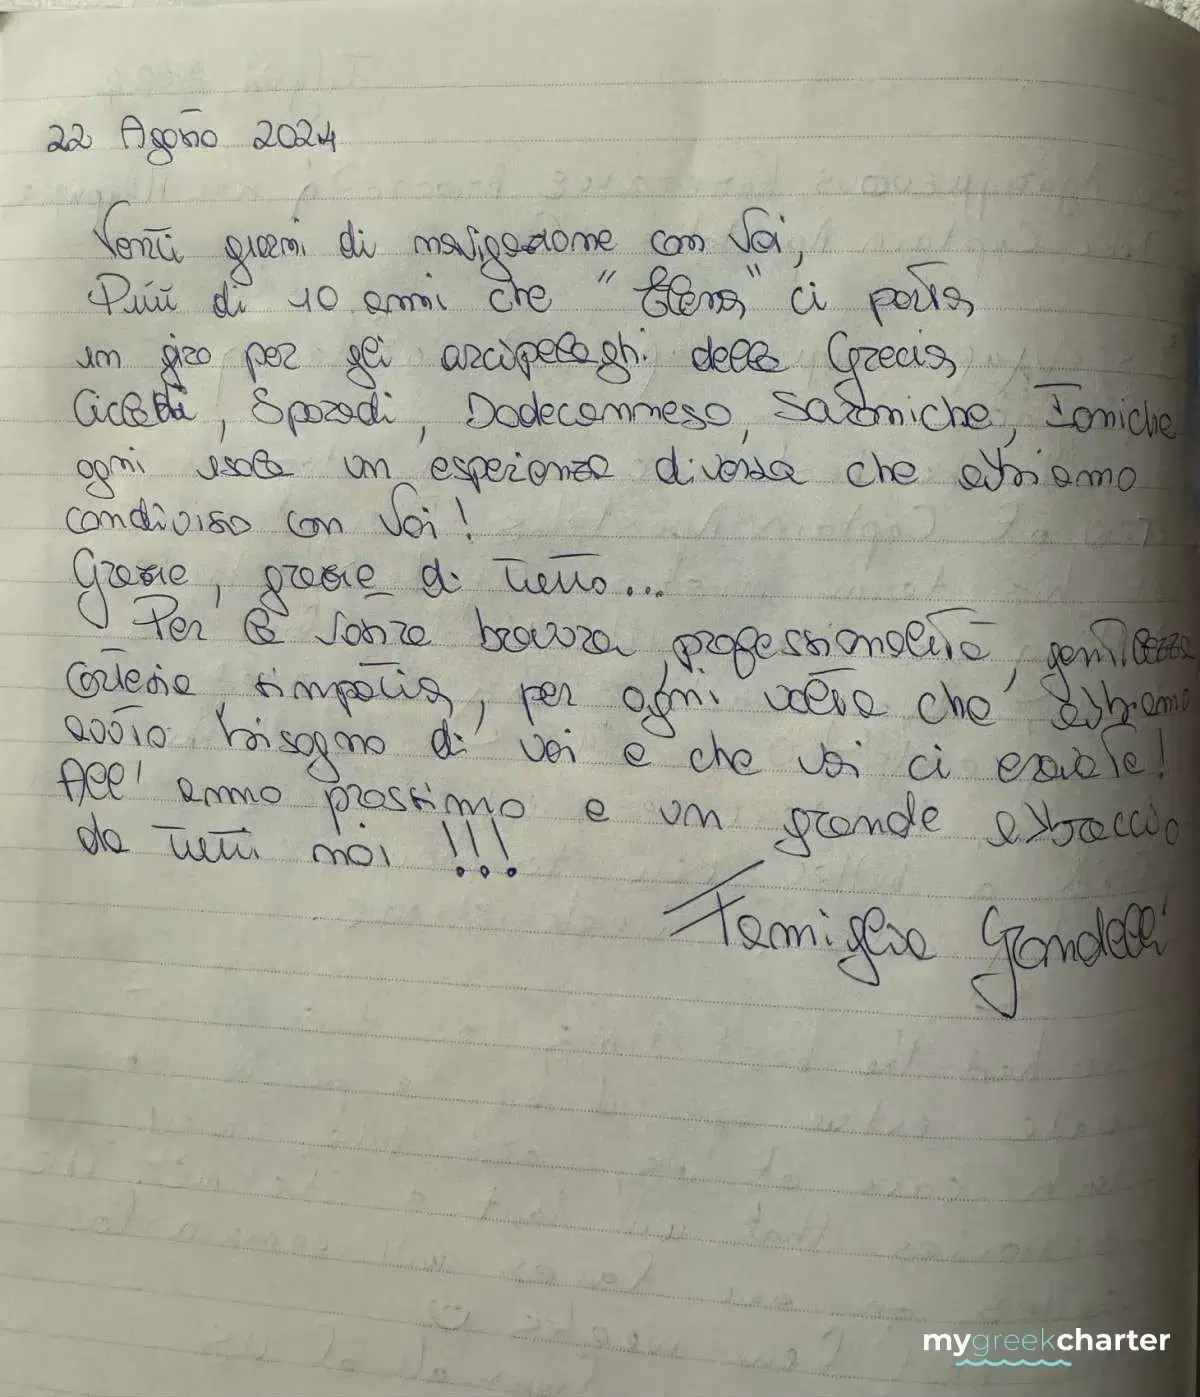 22 Agosto 2024
Venti giorni di navigazione con Voi,
Più di 10 anni che "Elena" ci porta
in giro per gli arcipelaghi della Grecia
Cicladi, Sporadi, Dodecanneso, Saroniche, Ioniche
ogni isola un esperienza diversa che abbiamo
condiviso con Voi!
Grazie, grazie di tutto...
Per la vostra bravura, professionalità, gentilezza
cortesia, simpatia, per ogni volta che abbiamo
avuto bisogno di voi e che voi ci eravate!
All'anno prossimo e un grande abbraccio
da tutti noi!!!
Famiglia Gandelli
mygreekcharter